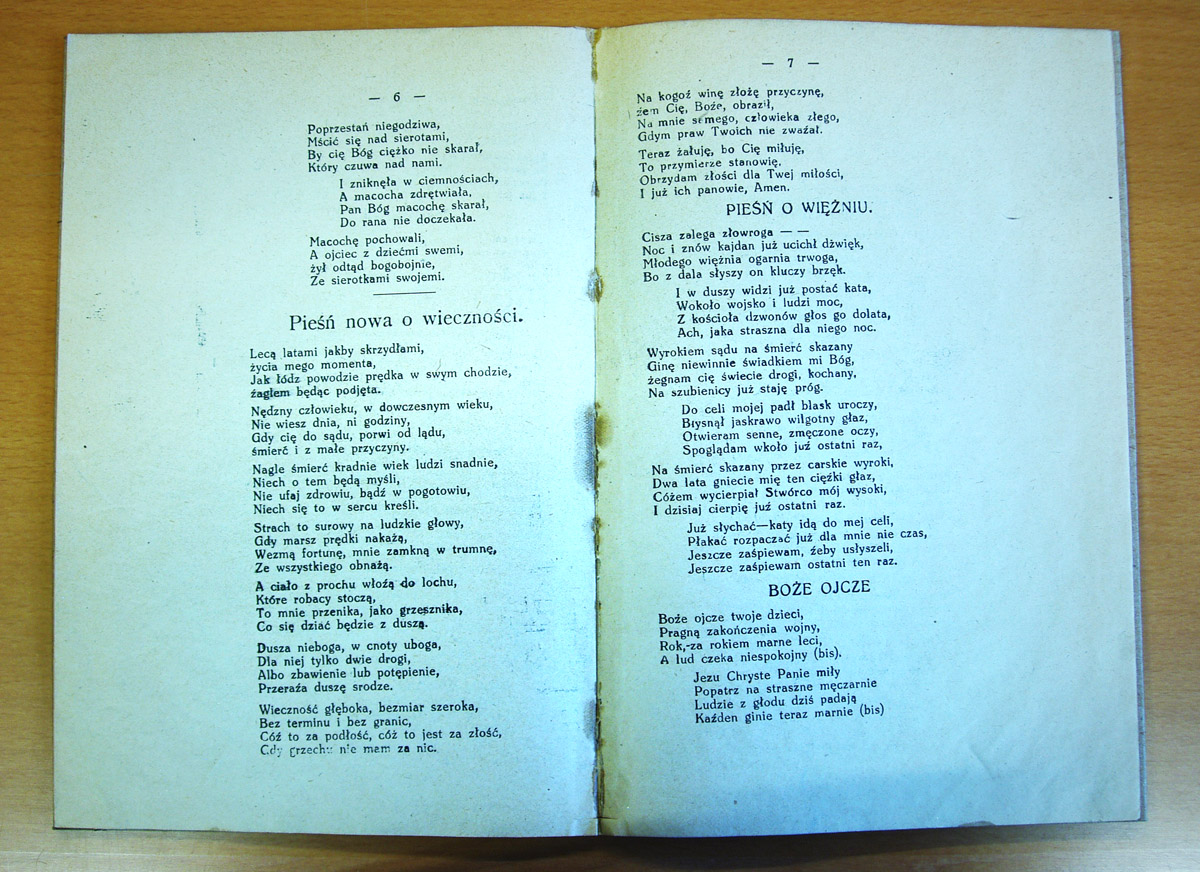 — 6 —
Poprzestań niegodziwa,
Mścić się nad sierotami,
By cię Bóg ciężko nie skarał,
Który czuwa nad nami.
I zniknęła w ciemnościach,
A macocha zdrętwiała,
Pan Bóg macochę skarał,
Do rana nie doczekała.
Macochę pochowali,
A ojciec z dziećmi swemi,
żył odtąd bogobojnie,
Ze sierotkami swojemi.
Pieśń nowa o wieczności.
Lecą latami jakby skrzydłami,
życia mego momenta,
Jak łódz powodzie prędka w swym chodzie,
żaglem będąc podjęta.
Nędzny człowieku, w dowczesnym wieku,
Nie wiesz dnia, ni godziny,
Gdy cię do sądu, porwi od lądu,
śmierć i z małe przyczyny.
Nagle śmierć kradnie wiek ludzi snadnie,
Niech o tem będą myśli,
Nie ufaj zdrowiu, bądź w pogotowiu,
Niech się to w sercu kreśli.
Strach to surowy na ludzkie głowy,
Gdy marsz prędki nakażą,
Wezmą fortunę, mnie zamkną w trumnę,
Ze wszystkiego obnażą.
A ciało z prochu włożą do lochu,
Które robacy stoczą,
To mnie przenika, jako grzesznika,
Co się dziać będzie z duszą.
Dusza nieboga, w cnoty uboga,
Dla niej tylko dwie drogi,
Albo zbawienie lub potępienie,
Przeraźa duszę srodze.
Wieczność głęboka, bezmiar szeroka,
Bez terminu i bez granic,
Cóź to za podłość, cóż to jest za złość,
Gdy grzechu nie mam za nic.
— 7 —
Na kogoź winę złożę przyczynę,
żem Cię, Boże, obraził,
Na mnie samego, człowieka złego,
Gdym praw Twoich nie zważał.
Teraz żałuję, bo Cię miłuję,
To przymierze stanowię.
Obrzydam złości dla Twej miłości,
I już ich panowie, Amen.
PIEŚŃ O WIĘŹNIU.
Cisza zalega złowroga — —
Noc i znów kajdan już ucichł dźwięk,
Młodego więźnia ogarnia trwoga,
Bo z dala słyszy on kluczy brzęk.
I w duszy widzi już postać kata,
Wokoło wojsko i ludzi moc,
Z kościoła dzwonów głos go dolata,
Ach, jaka straszna dla niego noc.
Wyrokiem sądu na śmierć skazany
Ginę niewinnie świadkiem mi Bóg,
żegnam cię świecie drogi, kochany,
Na szubienicy już staję próg.
Do celi mojej padł blask uroczy,
Błysnął jaskrawo wilgotny głaz,
Otwieram senne, zmęczone oczy,
Spoglądam wkoło juź ostatni raz,
Na śmierć skazany przez carskie wyroki,
Dwa lata gniecie mię ten ciężki głaz,
Cóżem wycierpiał Stwórco mój wysoki,
I dzisiaj cierpię juź ostatni raz.
Już słychać—katy idą do mej celi,
Płakać rozpaczać już dla mnie nie czas,
Jeszcze zaśpiewam, źeby usłyszeli,
Jeszcze zaśpiewam ostatni ten raz.
BOŻE OJCZE
Boże ojcze twoje dzieci,
Pragną zakończenia wojny,
Rok,-za rokiem marne leci,
A lud czeka niespokojny (bis).
Jezu Chryste Panie miły
Popatrz na straszne męczarnie
Ludzie z głodu dziś padają
Kaźden ginie teraz marnie (bis)